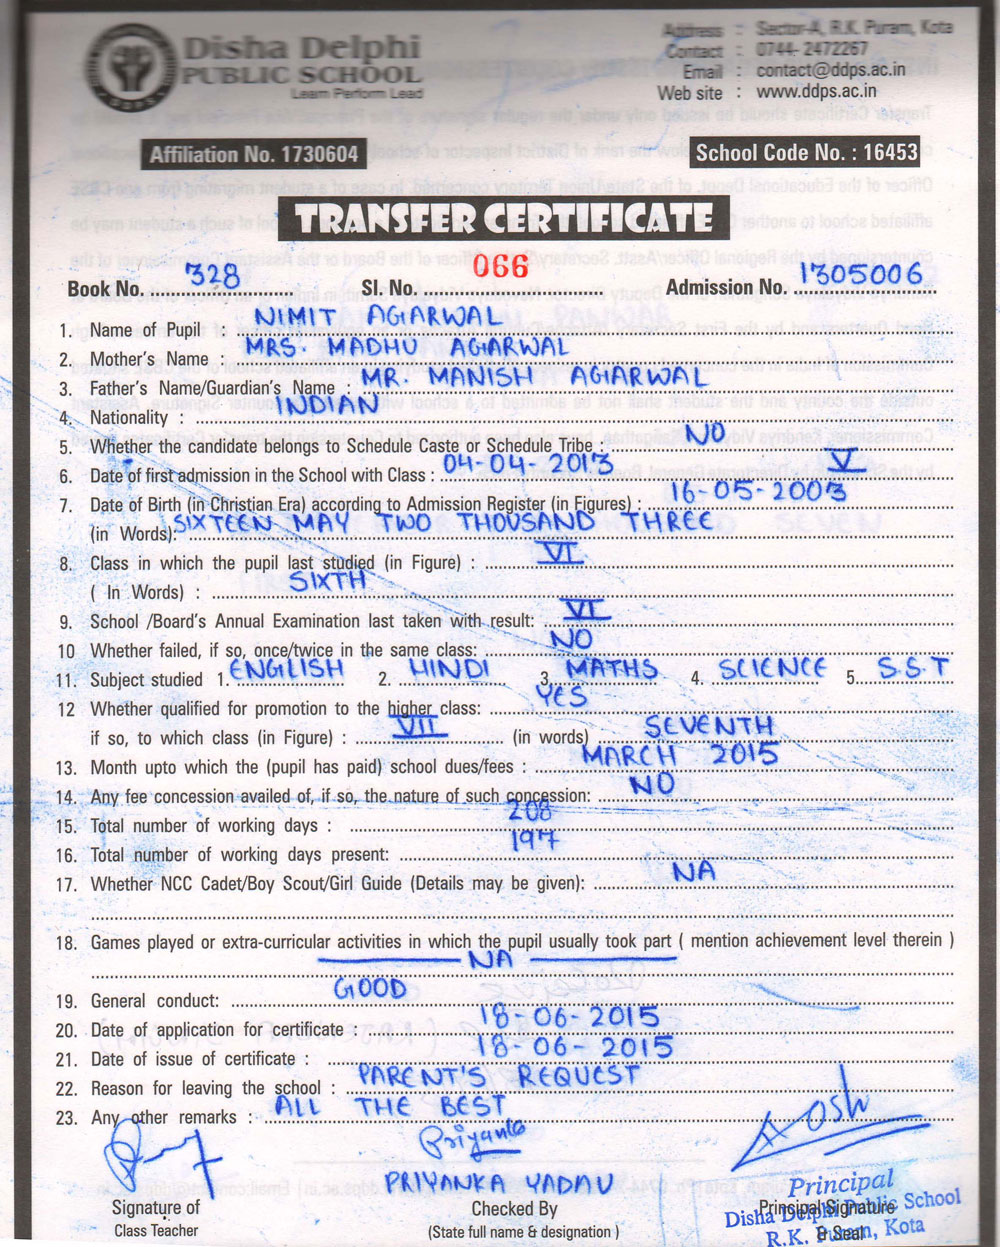 Disha Delphi
PUBLIC SCHOOL
Learn Perform Lead
DDPS
Address : Sector-A, R.K. Puram, Kota
Contact : 0744- 2472267
Email : contact@ddps.ac.in
Web site : www.ddps.ac.in
Affiliation No. 1730604
School Code No. : 16453
TRANSFER CERTIFICATE
Book No. 328 Sl. No. 066 Admission No. 1305006
1. Name of Pupil : NIMIT AGARWAL
2. Mother's Name : MRS. MADHU AGARWAL
3. Father's Name/Guardian's Name : MR. MANISH AGARWAL
4. Nationality INDIAN
5. Whether the candidate belongs to Schedule Caste or Schedule Tribe: NO
6. Date of first admission in the School with Class : 04-04-2013 V
7. Date of Birth (in Christian Era) according to Admission Register (in Figures) : 16-05-2003
(in Words): SIXTEEN MAY TWO THOUSAND THREE
8. Class in which the pupil last studied (in Figure) : VI
( In Words) : SIXTH
9. School /Board's Annual Examination last taken with result: VI
10 Whether failed, if so, once/twice in the same class: NO
11. Subject studied 1. ENGLISH 2. HINDI 3. MATHS 4. SCIENCE 5. S.S.T
12 Whether qualified for promotion to the higher class: YES
if so, to which class (in Figure) : VII (in words) SEVENTH
13. Month upto which the (pupil has paid) school dues/fees : MARCH 2015
14. Any fee concession availed of, if so, the nature of such concession: NO
15. Total number of working days : 208
16. Total number of working days present: 197
17. Whether NCC Cadet/Boy Scout/Girl Guide (Details may be given): NA
18. Games played or extra-curricular activities in which the pupil usually took part ( mention achievement level therein )
NA
19. General conduct: GOOD
20. Date of application for certificate : 18-06-2015
21. Date of issue of certificate : 18-06-2015
22. Reason for leaving the school : PARENT'S REQUEST
23. Any other remarks : ALL THE BEST
Priyanka
PRIYANKA YADAV
Signature of
Class Teacher
Checked By
(State full name & designation )
Principal Signature
& Seal
Principal
Disha Delphi Public School
R.K. Puram, Kota